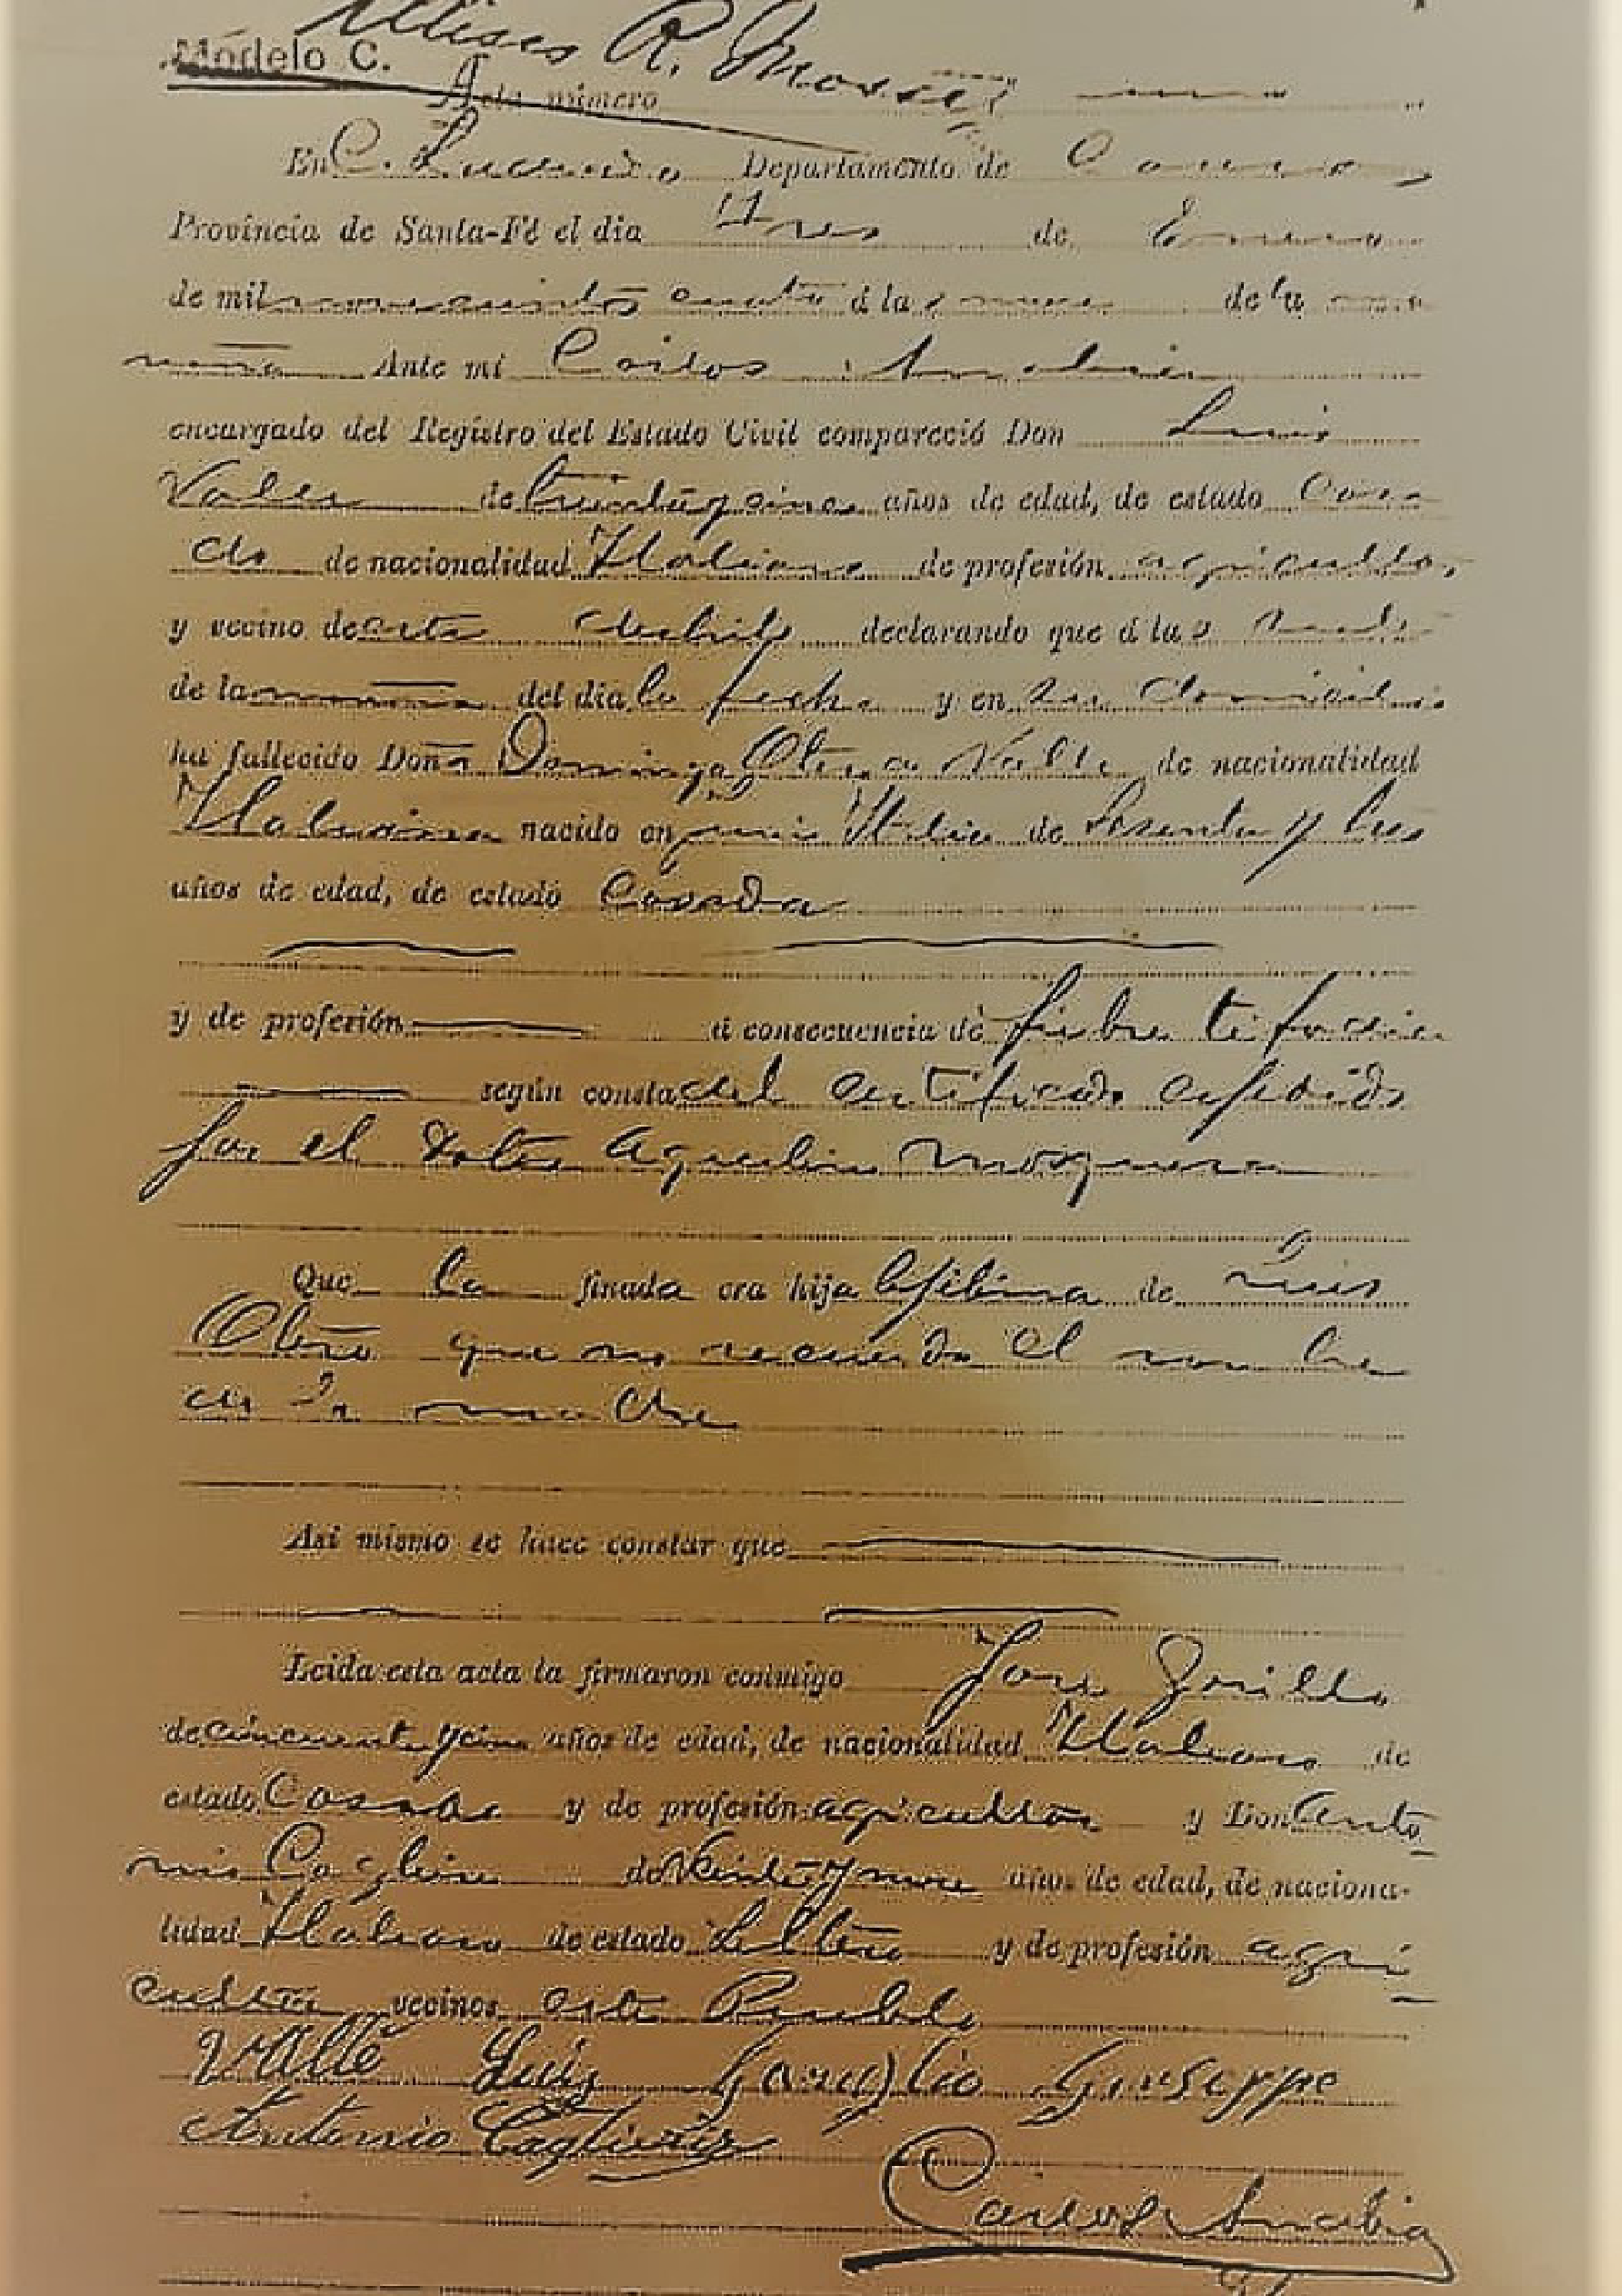 Modelo C.
Ulises R. Mosset
Acta número
En C. Lucero Departamento de
Provincia de Santa-Fé el dia Tres de Enero
de mil novecientos cuatro á las nueve de la ma
ñana Ante mi Carlos
encargado del Registro del Estado Civil compareció Don Luis
Valle de treinta y cinco años de edad, de estado Casa
do de nacionalidad Italiano de profesión agricultor
y vecino de este declarando que á las
de la mañana del dia la fecha y en su domicilio
ha fallecido Doña Dominga de Valle de nacionalidad
Italiana nacido en Italia de Sesenta y tres
años de edad, de estado Casada
y de profesión á consecuencia de fiebre tifoidea
según consta del certificado espedido
por el Doctor Aquilino Mosquera
Que la finada era hija lejitima de Luis
que no recuerda el nombre
de la madre
Asi mismo se hace constar que
Leida esta acta la firmaron conmigo José
de cincuenta y cinco años de edad, de nacionalidad Italiano de
estado Casado y de profesión agricultor y Don Anto
nio de veinte y nueve años de edad, de naciona-
lidad Italiano de estado Soltero y de profesión agri
cultor vecinos este Pueblo
Valle Luis Giuseppe
Antonio
Carlos